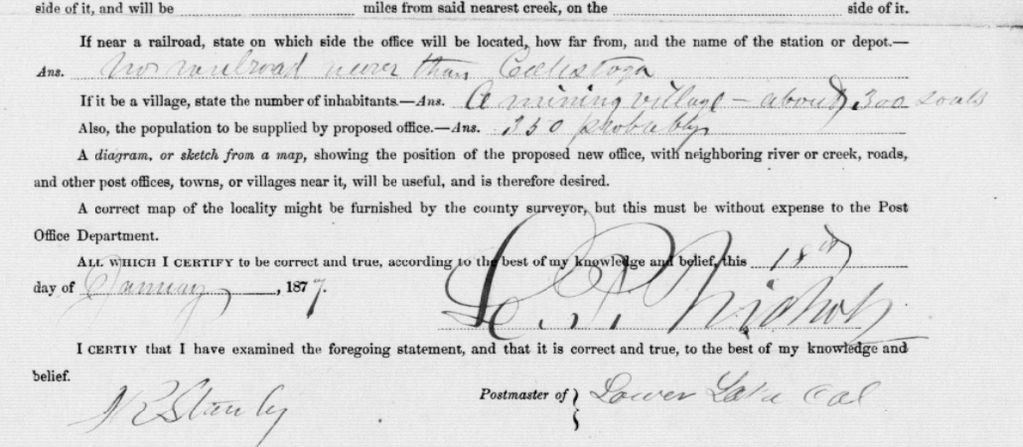 side of it, and will be miles from said nearest creek, on the side of it.
If near a railroad, state on which side the office will be located, how far from, and the name of the station or depot.—
Ans. No railroad nearer than Calistoga
If it be a village, state the number of inhabitants.—Ans. A mining village — about 300 souls
Also, the population to be supplied by proposed office.—Ans. 350 probably
A diagram, or sketch from a map, showing the position of the proposed new office, with neighboring river or creek, roads,
and other post offices, towns, or villages near it, will be useful, and is therefore desired.
A correct map of the locality might be furnished by the county surveyor, but this must be without expense to the Post
Office Department.
ALL WHICH I CERTIFY to be correct and true, according to the best of my knowledge and belief, this 18th
day of January, 1877.
Nichols
I CERTIY that I have examined the foregoing statement, and that it is correct and true, to the best of my knowledge and
belief.
Stanly Postmaster of Lower Lake Cal